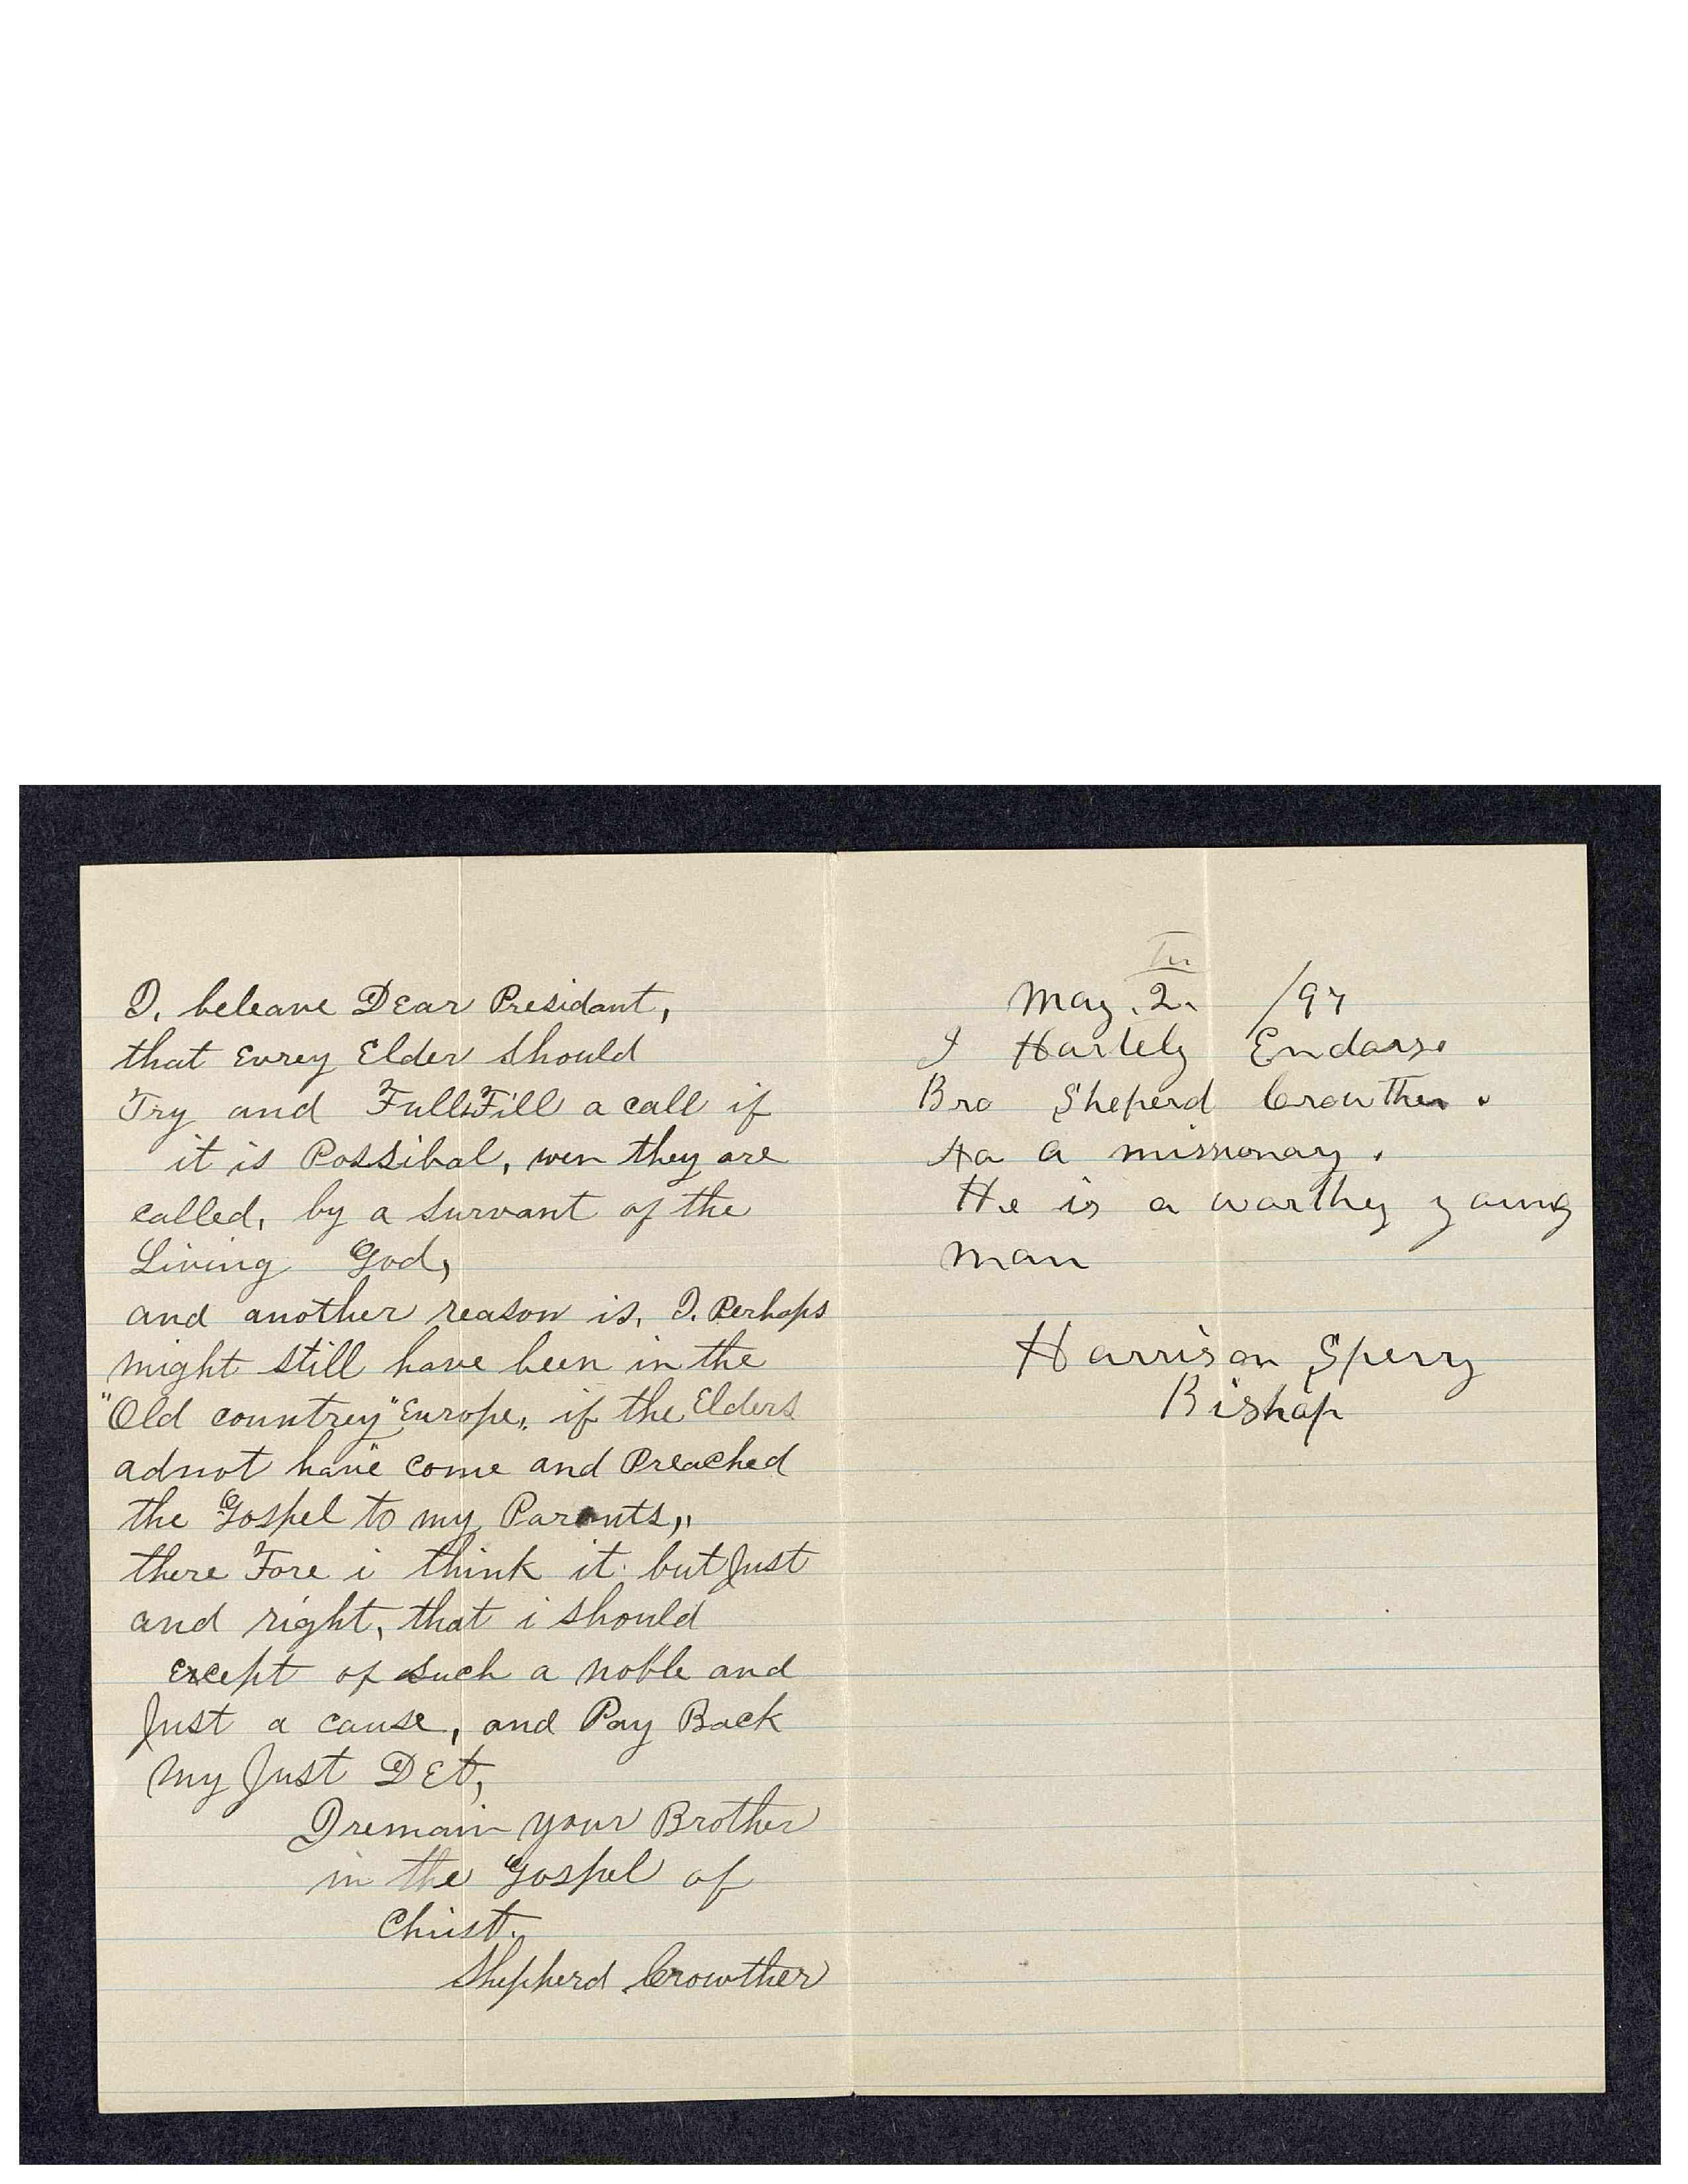 I. beleave Dear Presidant,
that Evrey Elder should
Try and FullFill a call if
it is Possibal, wen they are
called, by a survant of the
Living God,
and another reason is, I. Perhaps
might still have been in the
"Old countrey" Europe, if the Elders
adnot have come and Preached
the Gospel to my Parents,,
there Fore i think it but Just
and right, that i should
Except of such a noble and
Just a cause, and Pay Back
my Just DEt,
I remain your Brother
in the Gospel of
Christ.
Shepherd Crowther
May. 2. /97
I Hartely Endorse
Bro Sheperd Crowther.
As a missionary.
He is a worthey young
man
Harrison Sperry
Bishop